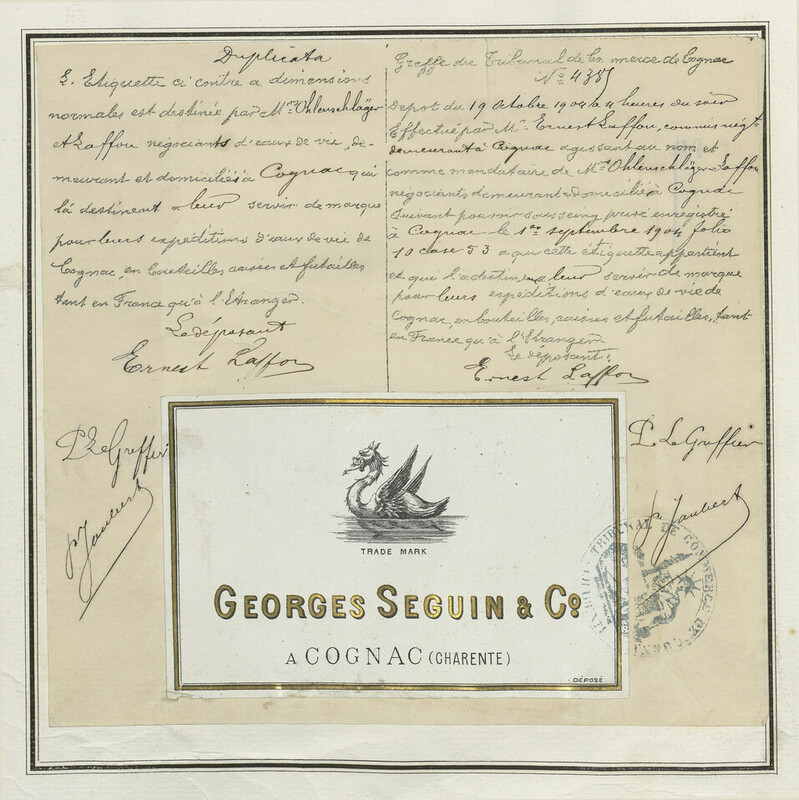 Duplicata
L. Etiquette ci contre a dimensions
normales est destinée par Mrs Ohlenschläger
et Laffon négociants d'eaux de vie, de-
meurant et domiciliés à Cognac qui
la destinent a leur servir de marque
pour leurs expéditions d'eaux de vie de
Cognac, en bouteilles caisses et futailles
tant en France qu'à l'Etranger.
Le déposant
Ernest Laffon
P. Le Greffier
P. Jaubert
Greffe du Tribunal de Commerce de Cognac
No 4351
Depot du 19 Octobre 1904 a 4 heures du soir
Effectué par Mr Ernest Laffon, commis négt
demeurant à Cognac agissant au nom et
comme mandataire de Mrs Ohlenschläger Laffon
négociants demeurant & domicilié à Cognac
suivant pouvoir sous seing privé enregistré
à Cognac le 1er septembre 1904 folio
10 case 53 a qui cette étiquette appartient
et qui l'a destinée a leur servir de marque
pour leurs expéditions d'eaux de vie de
Cognac, en bouteilles, caisses et futailles, tant
en France qu'à l'Etranger
Le déposant:
Ernest Laffon
P. Le Greffier
P. Jaubert
TRIBUNAL DE COMMERCE DE
TRADE MARK
GEORGES SEGUIN & Co
A COGNAC (CHARENTE)
DÉPOSÉ